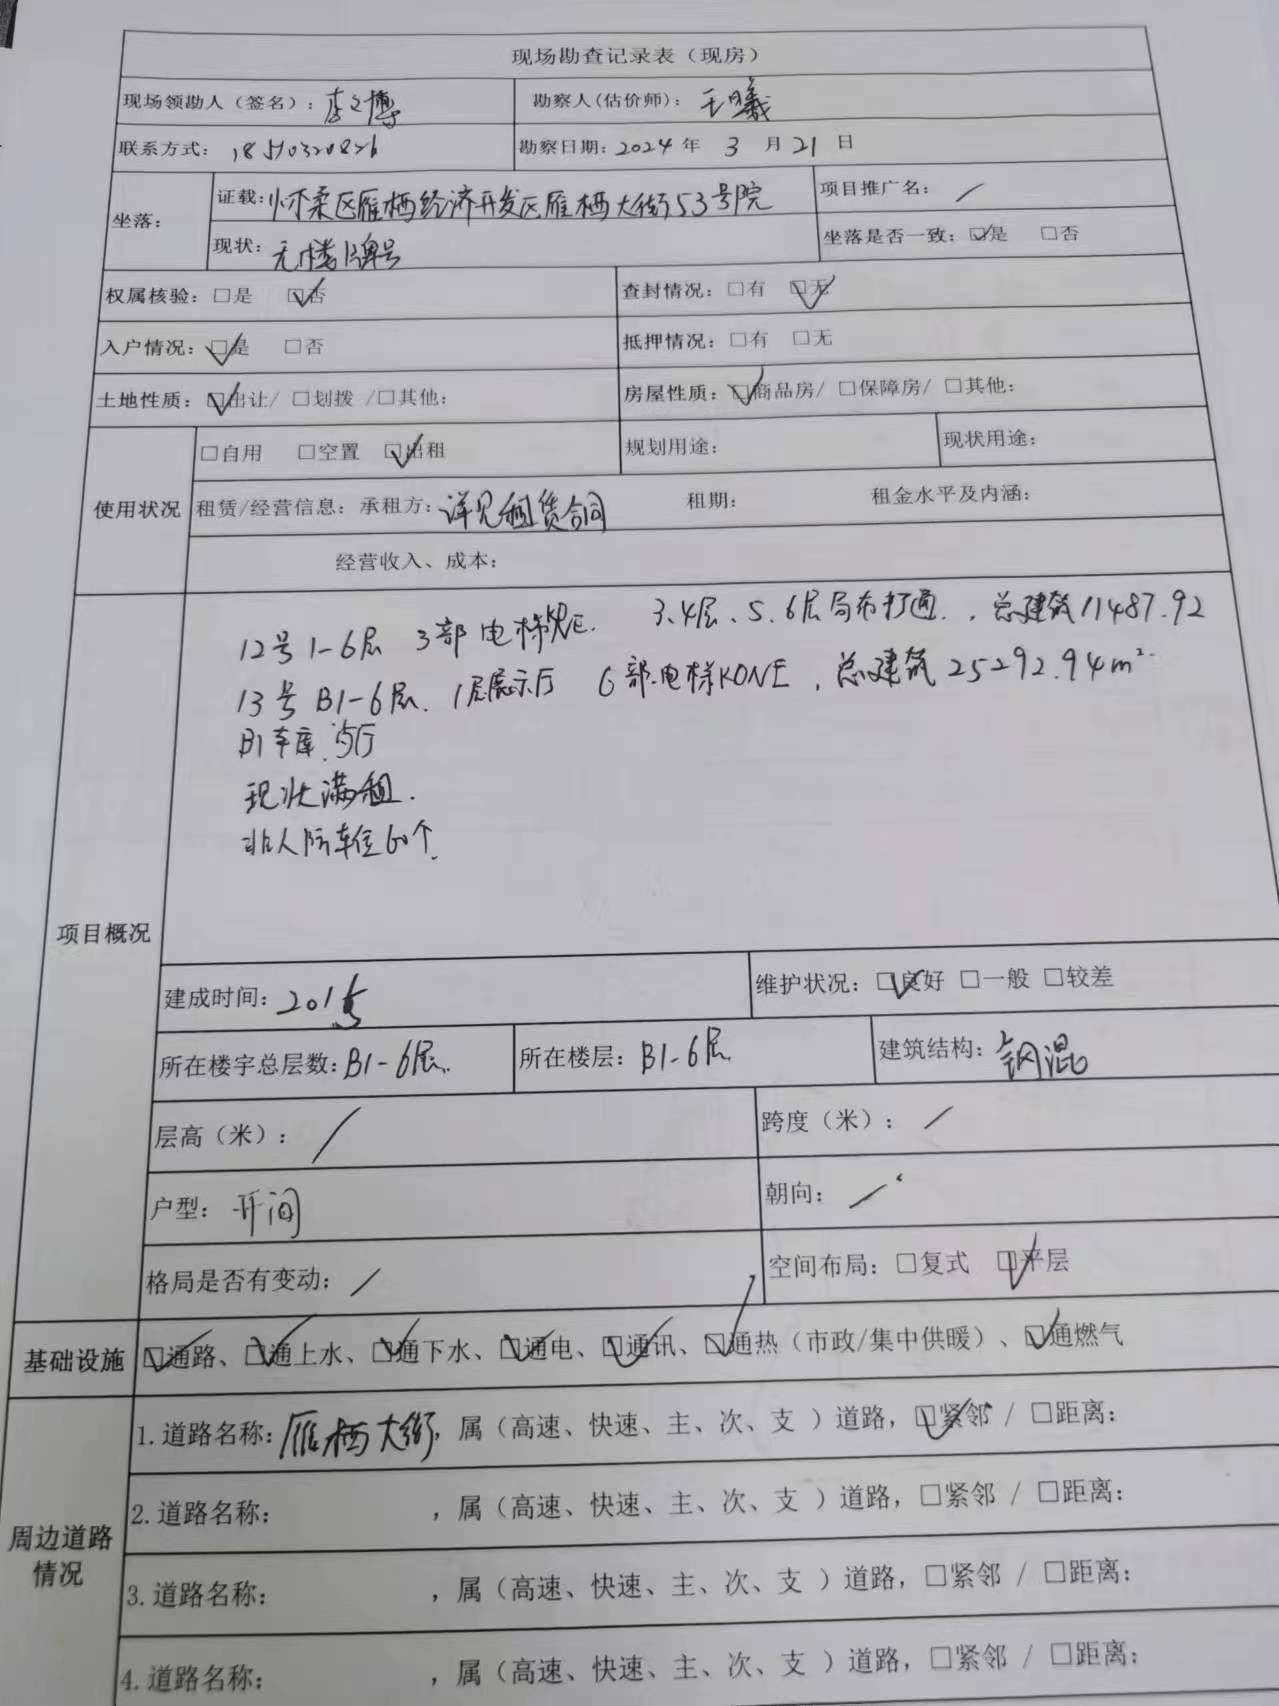 现场勘查记录表（现房）
现场领勘人（签名）：李文博 勘察人(估价师)：王曦
联系方式：18510320826 勘察日期：2024年 3 月 21 日
坐落：
证载：怀柔区雁栖经济开发区雁栖大街53号院 项目推广名：/
现状：无楼牌号 坐落是否一致：☑是 □否
权属核验：□是 ☑否 查封情况：□有 ☑无
入户情况：☑是 □否 抵押情况：□有 □无
土地性质：☑出让/ □划拨 /□其他： 房屋性质：☑商品房/ □保障房/ □其他：
使用状况
□自用 □空置 ☑出租 规划用途： 现状用途：
租赁/经营信息：承租方：详见租赁合同 租期： 租金水平及内涵：
经营收入、成本：
项目概况
12号 1-6层 3部电梯 3.4层、5.6层局部打通，总建筑11487.92
13号 B1-6层、1层展示厅 6部电梯KONE，总建筑25292.94m²
B1车库
现状满租.
非人防车位60个
建成时间：2015 维护状况：☑良好 □一般 □较差
所在楼宇总层数：B1-6层 所在楼层：B1-6层 建筑结构：钢混
层高（米）：/ 跨度（米）：/
户型：开间 朝向：/
格局是否有变动：/ 空间布局：□复式 ☑平层
基础设施 ☑通路、☑通上水、☑通下水、☑通电、☑通讯、☑通热（市政/集中供暖）、☑通燃气
周边道路情况
1.道路名称：雁栖大街，属（高速、快速、主、次、支 ）道路，☑紧邻 / □距离：
2.道路名称： ，属（高速、快速、主、次、支 ）道路，□紧邻 / □距离：
3.道路名称： ，属（高速、快速、主、次、支 ）道路，□紧邻 / □距离：
4.道路名称： ，属（高速、快速、主、次、支 ）道路，□紧邻 / □距离：